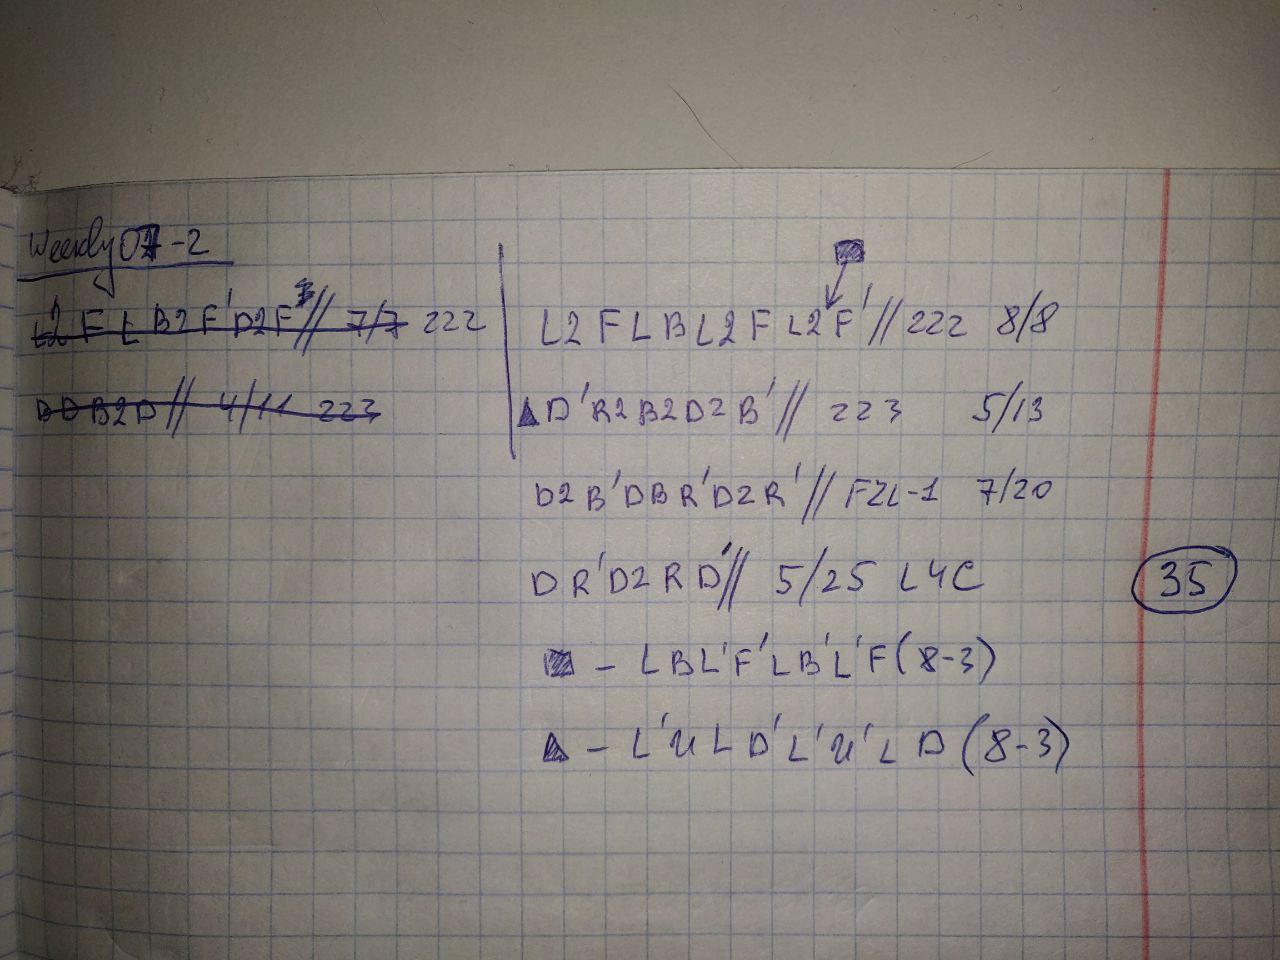 Weekly 07-2
L2 F L B2 F' D2 F' // 7/7 222
B D B2 D // 4/11 223
L2 F L B L2 F L2 F' // 222 8/8
D' R2 B2 D2 B' // 223 5/13
D2 B' D B R' D2 R' // F2L-1 7/20
D R' D2 R D' // 5/25 L4C
35
- L B L' F' L B' L' F (8-3)
- L' U L D' L' U' L D (8-3)